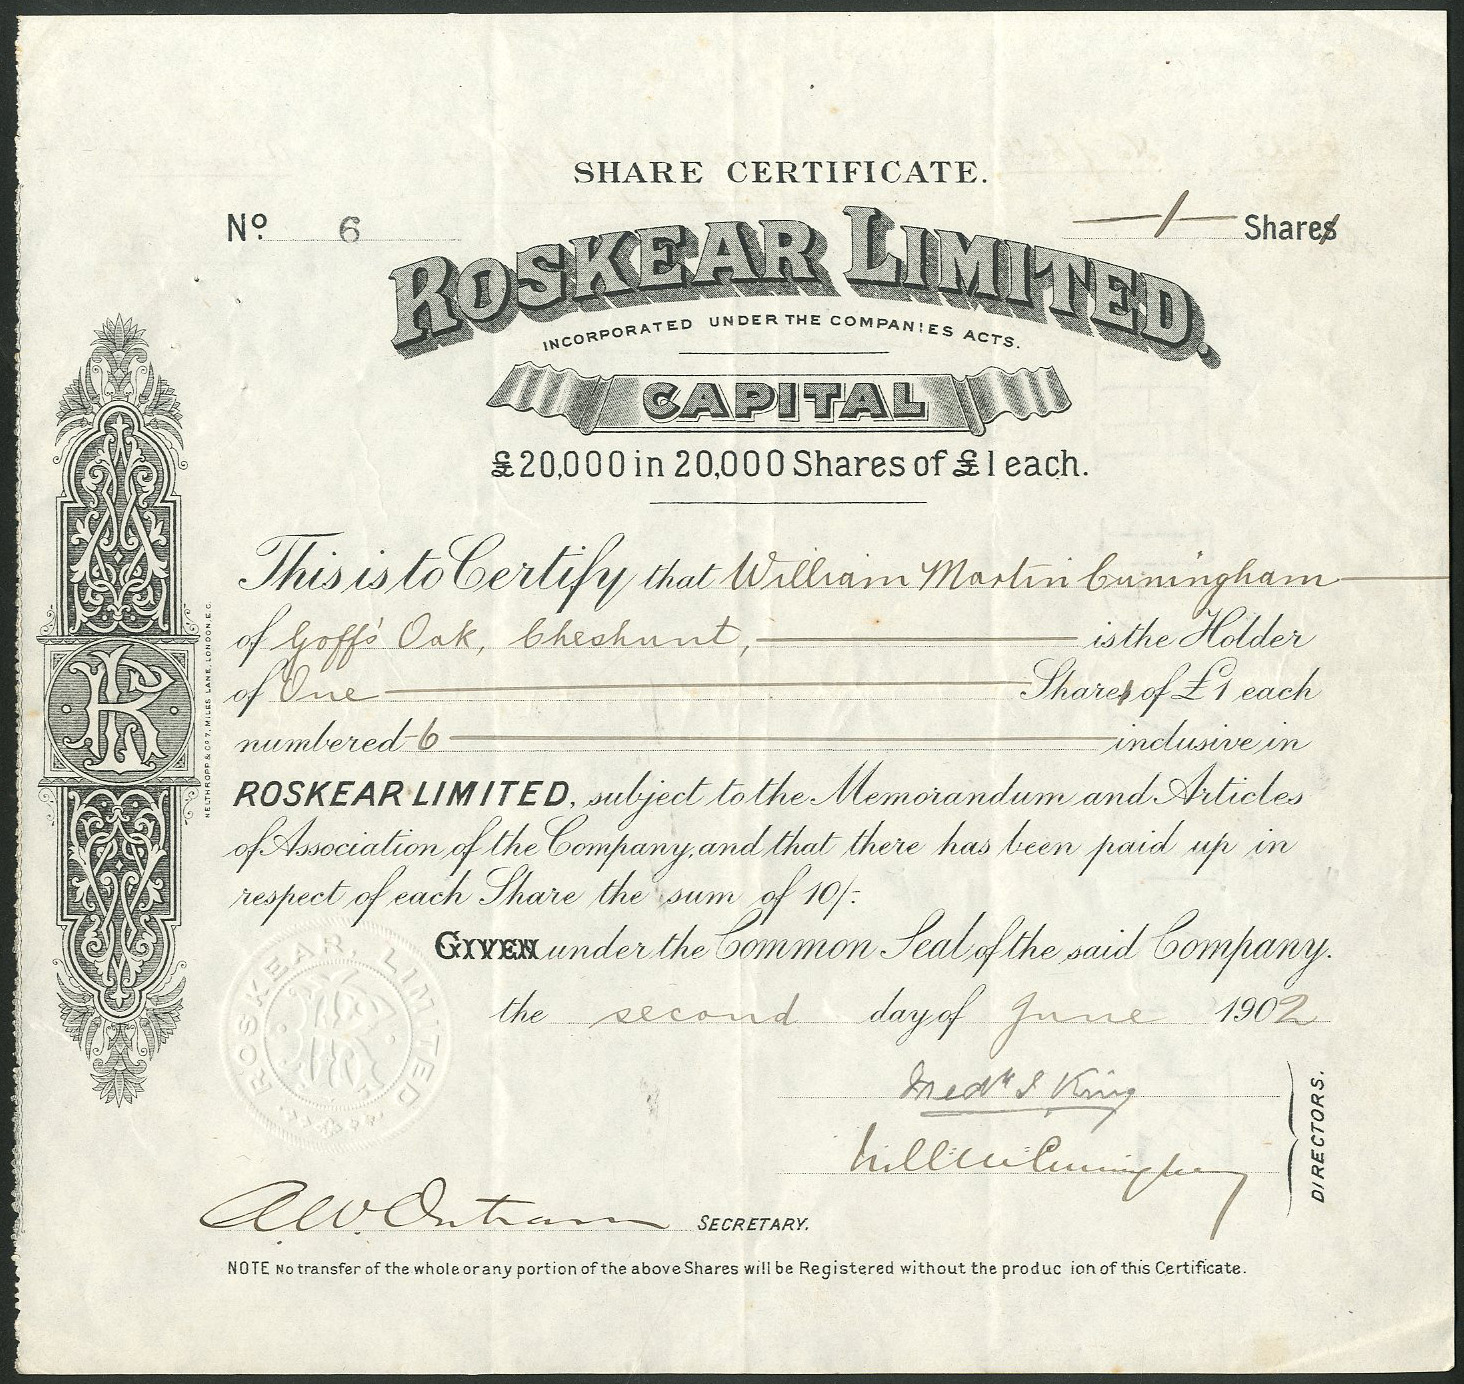 SHARE CERTIFICATE.
Nº 6
1 Shares
ROSKEAR LIMITED.
INCORPORATED UNDER THE COMPANIES ACTS.
CAPITAL
£20,000 in 20,000 Shares of £1 each.
This is to Certify that William Martin Cuningham
of Goff's Oak, Cheshunt, is the Holder
of One Shares of £1 each
numbered 6 inclusive in
ROSKEAR LIMITED, subject to the Memorandum and Articles
of Association of the Company, and that there has been paid up in
respect of each Share the sum of 10/-.
GIVEN under the Common Seal of the said Company.
the second day of June 1902
King
Will M Cuningham
DIRECTORS.
A. W. Outram SECRETARY.
NOTE No transfer of the whole or any portion of the above Shares will be Registered without the produc ion of this Certificate.
R
NELTHROPP & Co 7, MILES LANE, LONDON. E.C.
ROSKEAR, LIMITED